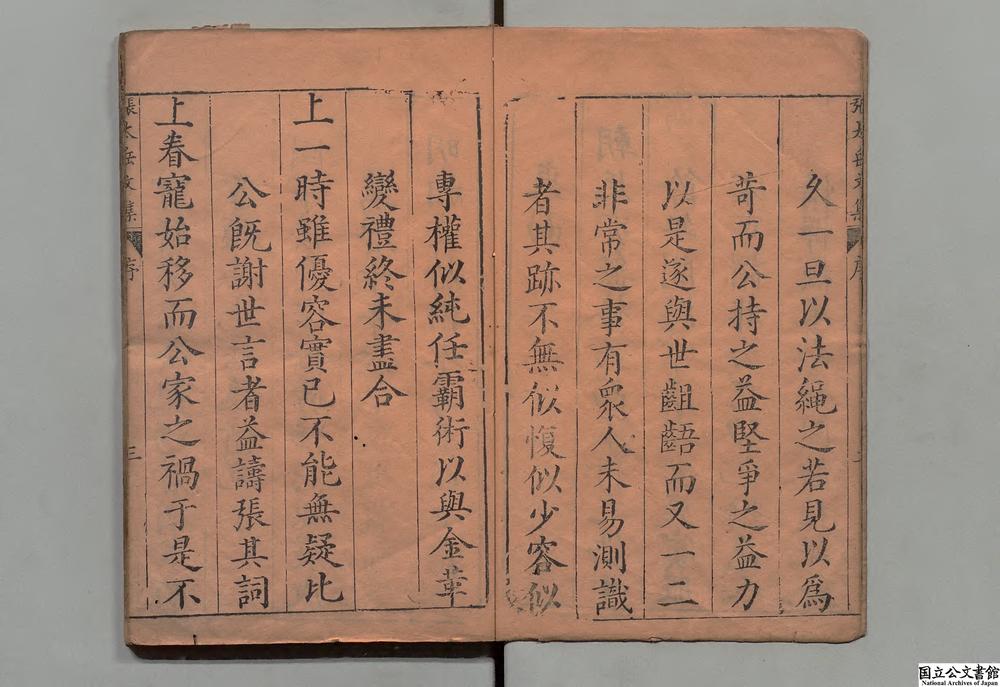 張太岳文集 序
久一旦以法繩之若見以爲
苛而公持之益堅爭之益力
以是遂與世齟齬而又一二
非常之事有衆人未易測識
者其跡不無似愎似少容似
專權似純任霸術以與金革
變禮終未盡合
上一時雖優容實已不能無疑比
公旣謝世言者益譸張其詞
上眷寵始移而公家之禍于是不
張太岳文集 序 三
国立公文書館
National Archives of Japan